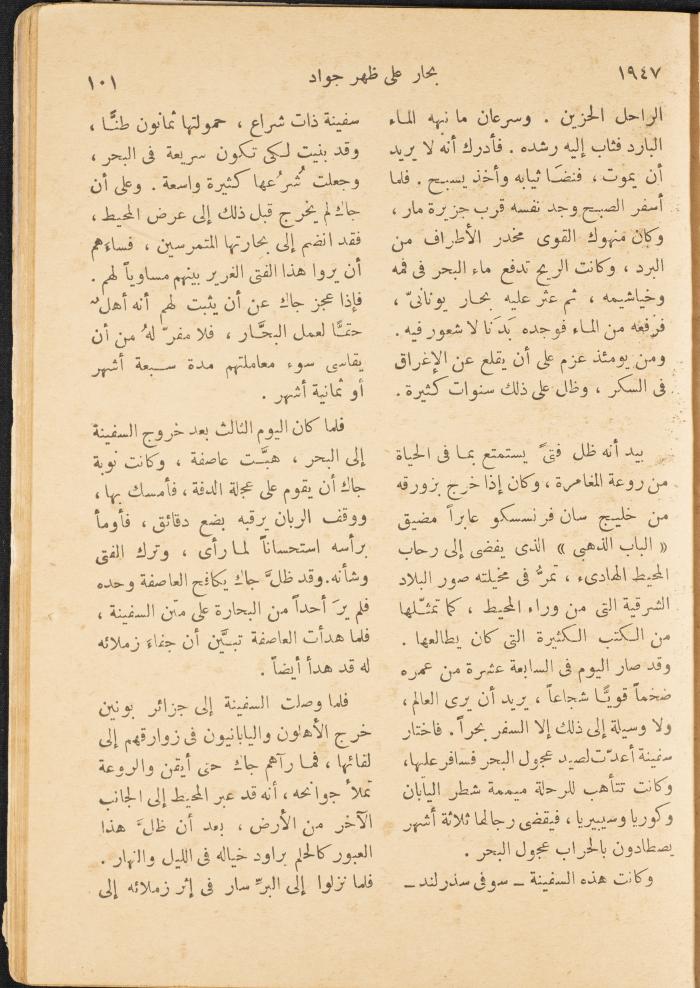 ١٩٤٧
بحار على ظهر جواد
١٠١
الراحل الحزين . وسرعان ما نبهه الماء
البارد فثاب إليه رشده . فأدرك أنه لا يريد
أن يموت ، فنضَا ثيابه وأخذ يسبح . فلما
أسفر الصبح وجد نفسه قرب جزيرة مار ،
وكان منهوك القوى مخدر الأطراف من
البرد ، وكانت الريح تدفع ماء البحر فى فمه
وخياشيمه ، ثم عثر عليه بحار يونانىّ ،
فرفعه من الماء فوجده بَدَنا لا شعور فيه .
ومن يومئذ عزم على أن يقلع عن الإغراق
فى السكر ، وظل على ذلك سنوات كثيرة .
بيد أنه ظل فتىً يستمتع بما فى الحياة
من روعة المغامرة ، وكان إذا خرج بزورقه
من خليج سان فرنسسكو عابراً مضيق
« الباب الذهبى » الذى يفضى إلى رحاب
المحيط الهادىء ، تمرُّ فى مخيلته صور البلاد
الشرقية التى من وراء المحيط ، كما تمثّلها
من الكتب الكثيرة التى كان يطالعها .
وقد صار اليوم فى السابعة عشرة من عمره
ضخماً قويًّا شجاعاً ، يريد أن يرى العالم ،
ولا وسيلة إلى ذلك إلا السفر بحراً . فاختار
سفينة أعدّت لصيد عجول البحر فسافر عليها ،
وكانت تتأهب للرحلة ميممة شطر اليابان
وكوريا وسيبيريا ، فيقضى رجالها ثلاثة أشهر
يصطادون بالحراب عجول البحر .
وكانت هذه السفينة ــ سوفى سذرلند ــ
سفينة ذات شراع ، حمولتها ثمانون طنًّا ،
وقد بنيت لكى تكون سريعة فى البحر ،
وجعلت شُرُعها كثيرة واسعة . وعلى أن
جاك لم يخرج قبل ذلك إلى عرض المحيط ،
فقد انضم إلى بحارتها المتمرسين ، فساءهم
أن يروا هذا الفتى الغرير بينهم مساوياً لهم .
فإذا عجز جاك عن أن يثبت لهم أنه أهلٌ
حتمًّا لعمل البحَّار ، فلا مفرّ لهُ من أن
يقاسى سوء معاملتهم مدة سبعة أشهر
أو ثمانية أشهر .
فلما كان اليوم الثالث بعد خروج السفينة
إلى البحر ، هبَّت عاصفة ، وكانت نوبة
جاك أن يقوم على عجلة الدفة ، فأمسك بها ،
ووقف الربان يرقبه بضع دقائق ، فأومأ
برأسه استحساناً لما رأى ، وترك الفتى
وشأنه . وقد ظلَّ جاك يكافح العاصفة وحده
فلم يرَ أحداً من البحارة على متن السفينة ،
فلما هدأت العاصفة تبيَّن أن جفاءَ زملائه
له قد هدأ أيضاً .
فلما وصلت السفينة إلى جزائر بونين
خرج الأهلون واليابانيون فى زوارقهم إلى
لقائها ، فما رآهم جاك حتى أيقن والروعة
تملأ جوانحه ، أنه قد عبر المحيط إلى الجانب
الآخر من الأرض ، بعد أن ظلَّ هذا
العبور كالحلم يراود خياله فى الليل والنهار .
فلما نزلوا إلى البرِّ سار فى إثر زملائه إلى